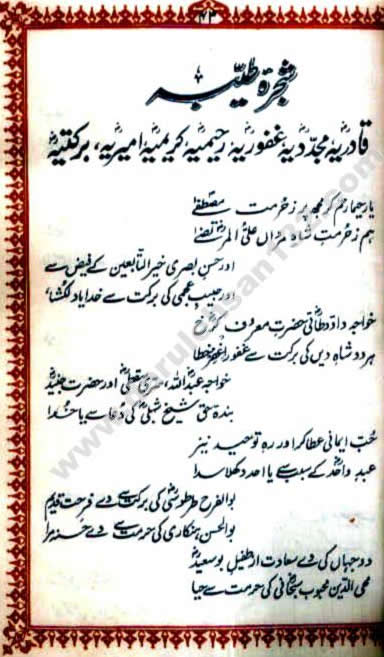 ۷۳
شجرۂ طیّبہ
قادریہ مجدّدیہ غفوریہ رحیمیہ کریمیہ امیریہ، برکتیہ
یا رحیما رحم کر مجھ پر ز حرمت مصطفےٰ
ہم ز حرمت شاہ مرداں علی المرتضےٰ
اور حسن بصری خیر التابعین کے فیض سے
اور حبیب عجمی کی برکت سے خدایا دلکشا
خواجہ داؤد طائی حضرت معروف کرخ
ہر دو شاہ دیں کی برکت سے غفورا
خواجہ عبد اللہ، سری سقطی اور حضرت جنید
بندۂ حق شیخ شبلی کی دعا سے یا خدا
حب ایمانی عطا کر اور رہ توحید نیز
عبد واحد کے سبب سے یا احد دکھلا سدا
بو الفرح طرطوسی کی برکت سے دے فرحت قدیم
بو الحسن ہنکاری کی حرمت سے دے
دو جہاں کی دے سعادت از طفیل بو سعید
محی الدین محبوب سبحانی کی حرمت سے حیا